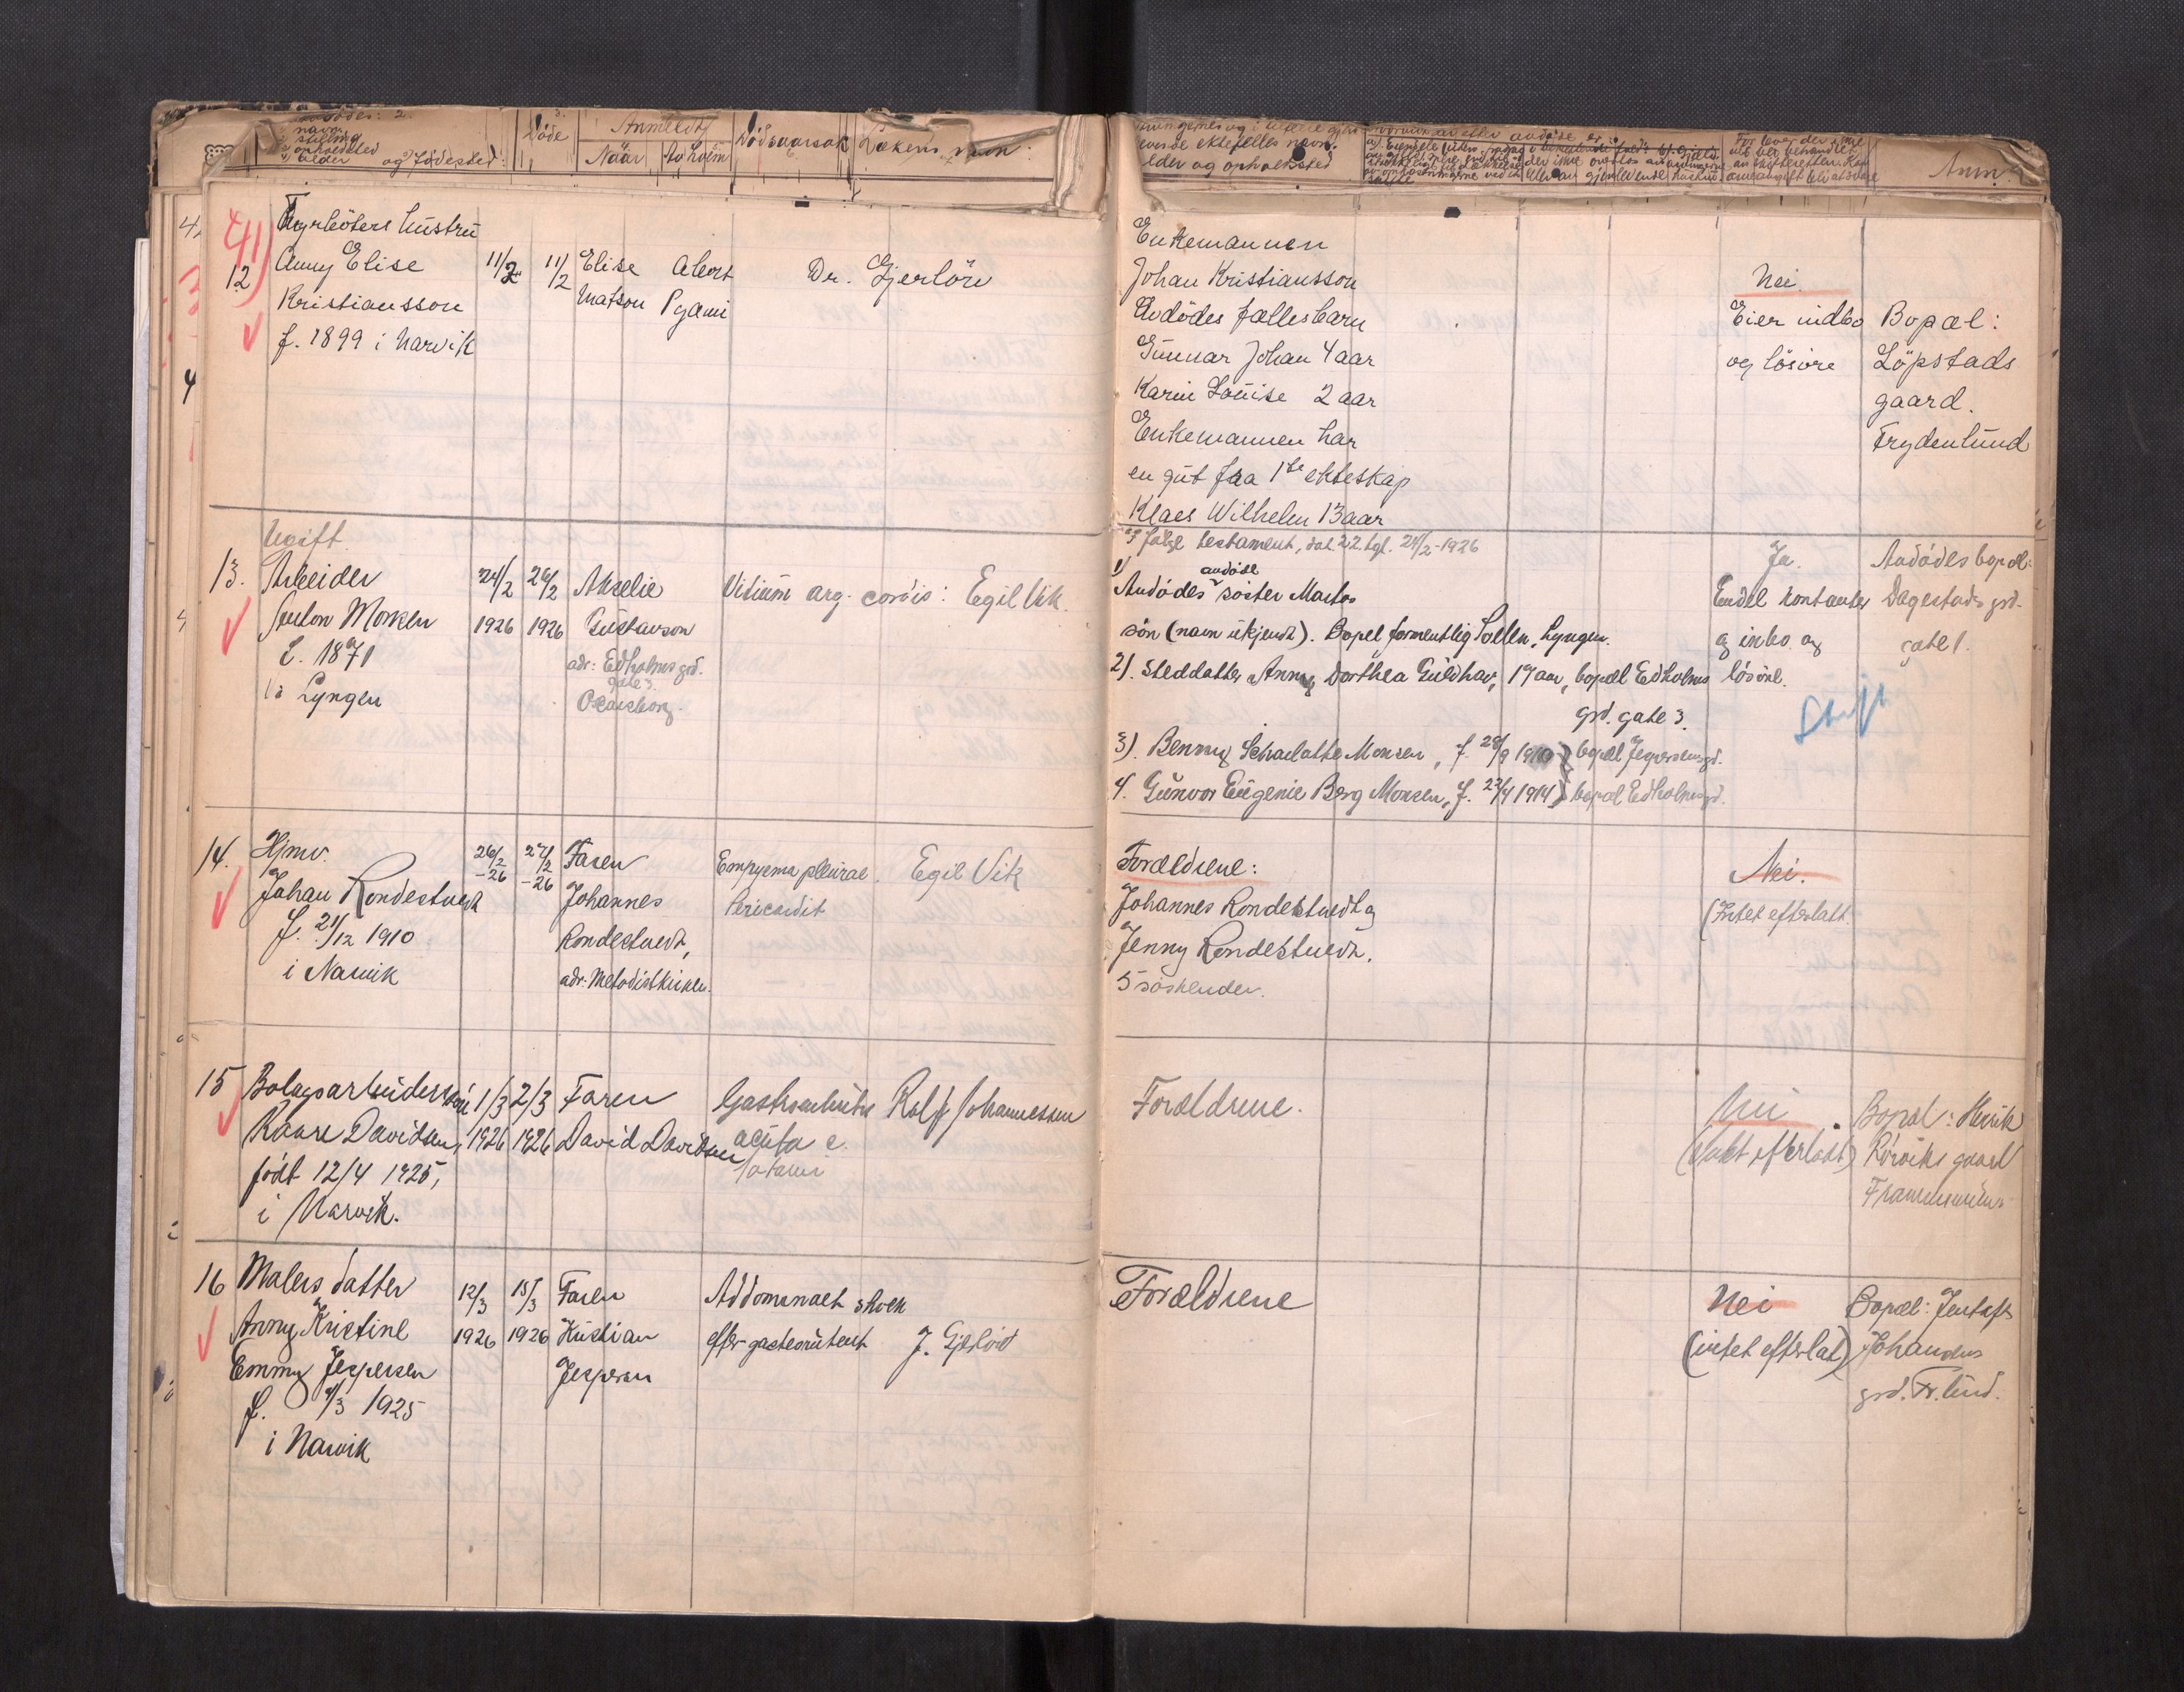 navn
stilling
opholdssted
alder og födested:
Döde
Anmeldt
Naar
Av hvem
Dödsaarsak
Lækens navn:
Anm.
12
Fyrböters hustru
Anny Elise
Kristiansson
f. 1899 i Narvik
11/2
11/2
Elise
Matson
Abort
Pyæmi
Dr. Gjerlöv
Enkemannen
Johan Kristiansson
Avdödes fællesbarn
Gunnar Johan 4 aar
Karin Louise 2 aar
Enkemannen har
en gut fra 1ste ekteskap
Klaes Wilhelm 13 aar
Nei.
Eier indbo
og lösöre
Bopæl:
Löpstads
gaard.
Frydenlund
13.
Ugift
Arbeider
Anton Monsen
f. 1871
i Lyngen
24/2
1926
26/2
1926
Amelie
Gustavson
adr: Edholms grd.
gate 3.
Oscarsborg.
Vitium org. cordis:
Egil Vik.
I følge testament, dat. 22. tgl. 24/2-1926
1) Avdödes avdöde söster Martas
sön (navn ukjendt). Bopæl formentlig Lyngen.
2). Steddatter Anny Dorthea Guldhav, 19 aar, bopæl Edholms
grd. gate 3.
3). Benny Scharlotte Monsen, f. 28/9 1910 bopæl Jespersens grd.
4. Gunvor Eugenie Berg Monsen, f. 23/4 1914 bopæl Edholms grd.
Ja.
Endel kontanter
og inbo og
lösöre.
Skift
Avdödes bopæl:
Dagestads grd.
gate 1.
14.
Hjmv.
Johan Rondestvedt
f. 21/12 1910
i Narvik
26/2
-26
27/2
-26
Faren
Johannes
Rondestvedt,
adr: Metodistkirken.
Empyema pleurae.
Pericardit
Egil Vik
Forældrene:
Johannes Rondestvedt og
Jenny Rondestvedt.
5 söskender.
Nei.
(Intet efterlatt.
15
Bolagsarbeiders sön
Kaare Davidsen,
födt 12/4 1925,
i Narvik.
1/3
1926
2/3
1926
Faren
David Davidsen
Gastroenterit
acuta c.
Rolf Johannessen
Forældrene.
Nei
(Intet efterlatt)
Bopæl: Henrik
Rörviks gaard
16
Malers datter
Anny Kristine
Emmy Jespersen
f. 4/3 1925
i Narvik
12/3
1926
15/3
1926
Faren
Kristian
Jespersen
Abdominalt shock
efter gastroenterit
J. Gjerlöv
Forældrene
Nei
(intet efterlat)
Bopæl: Jentoft
Johansens
grd. Fr. lund.